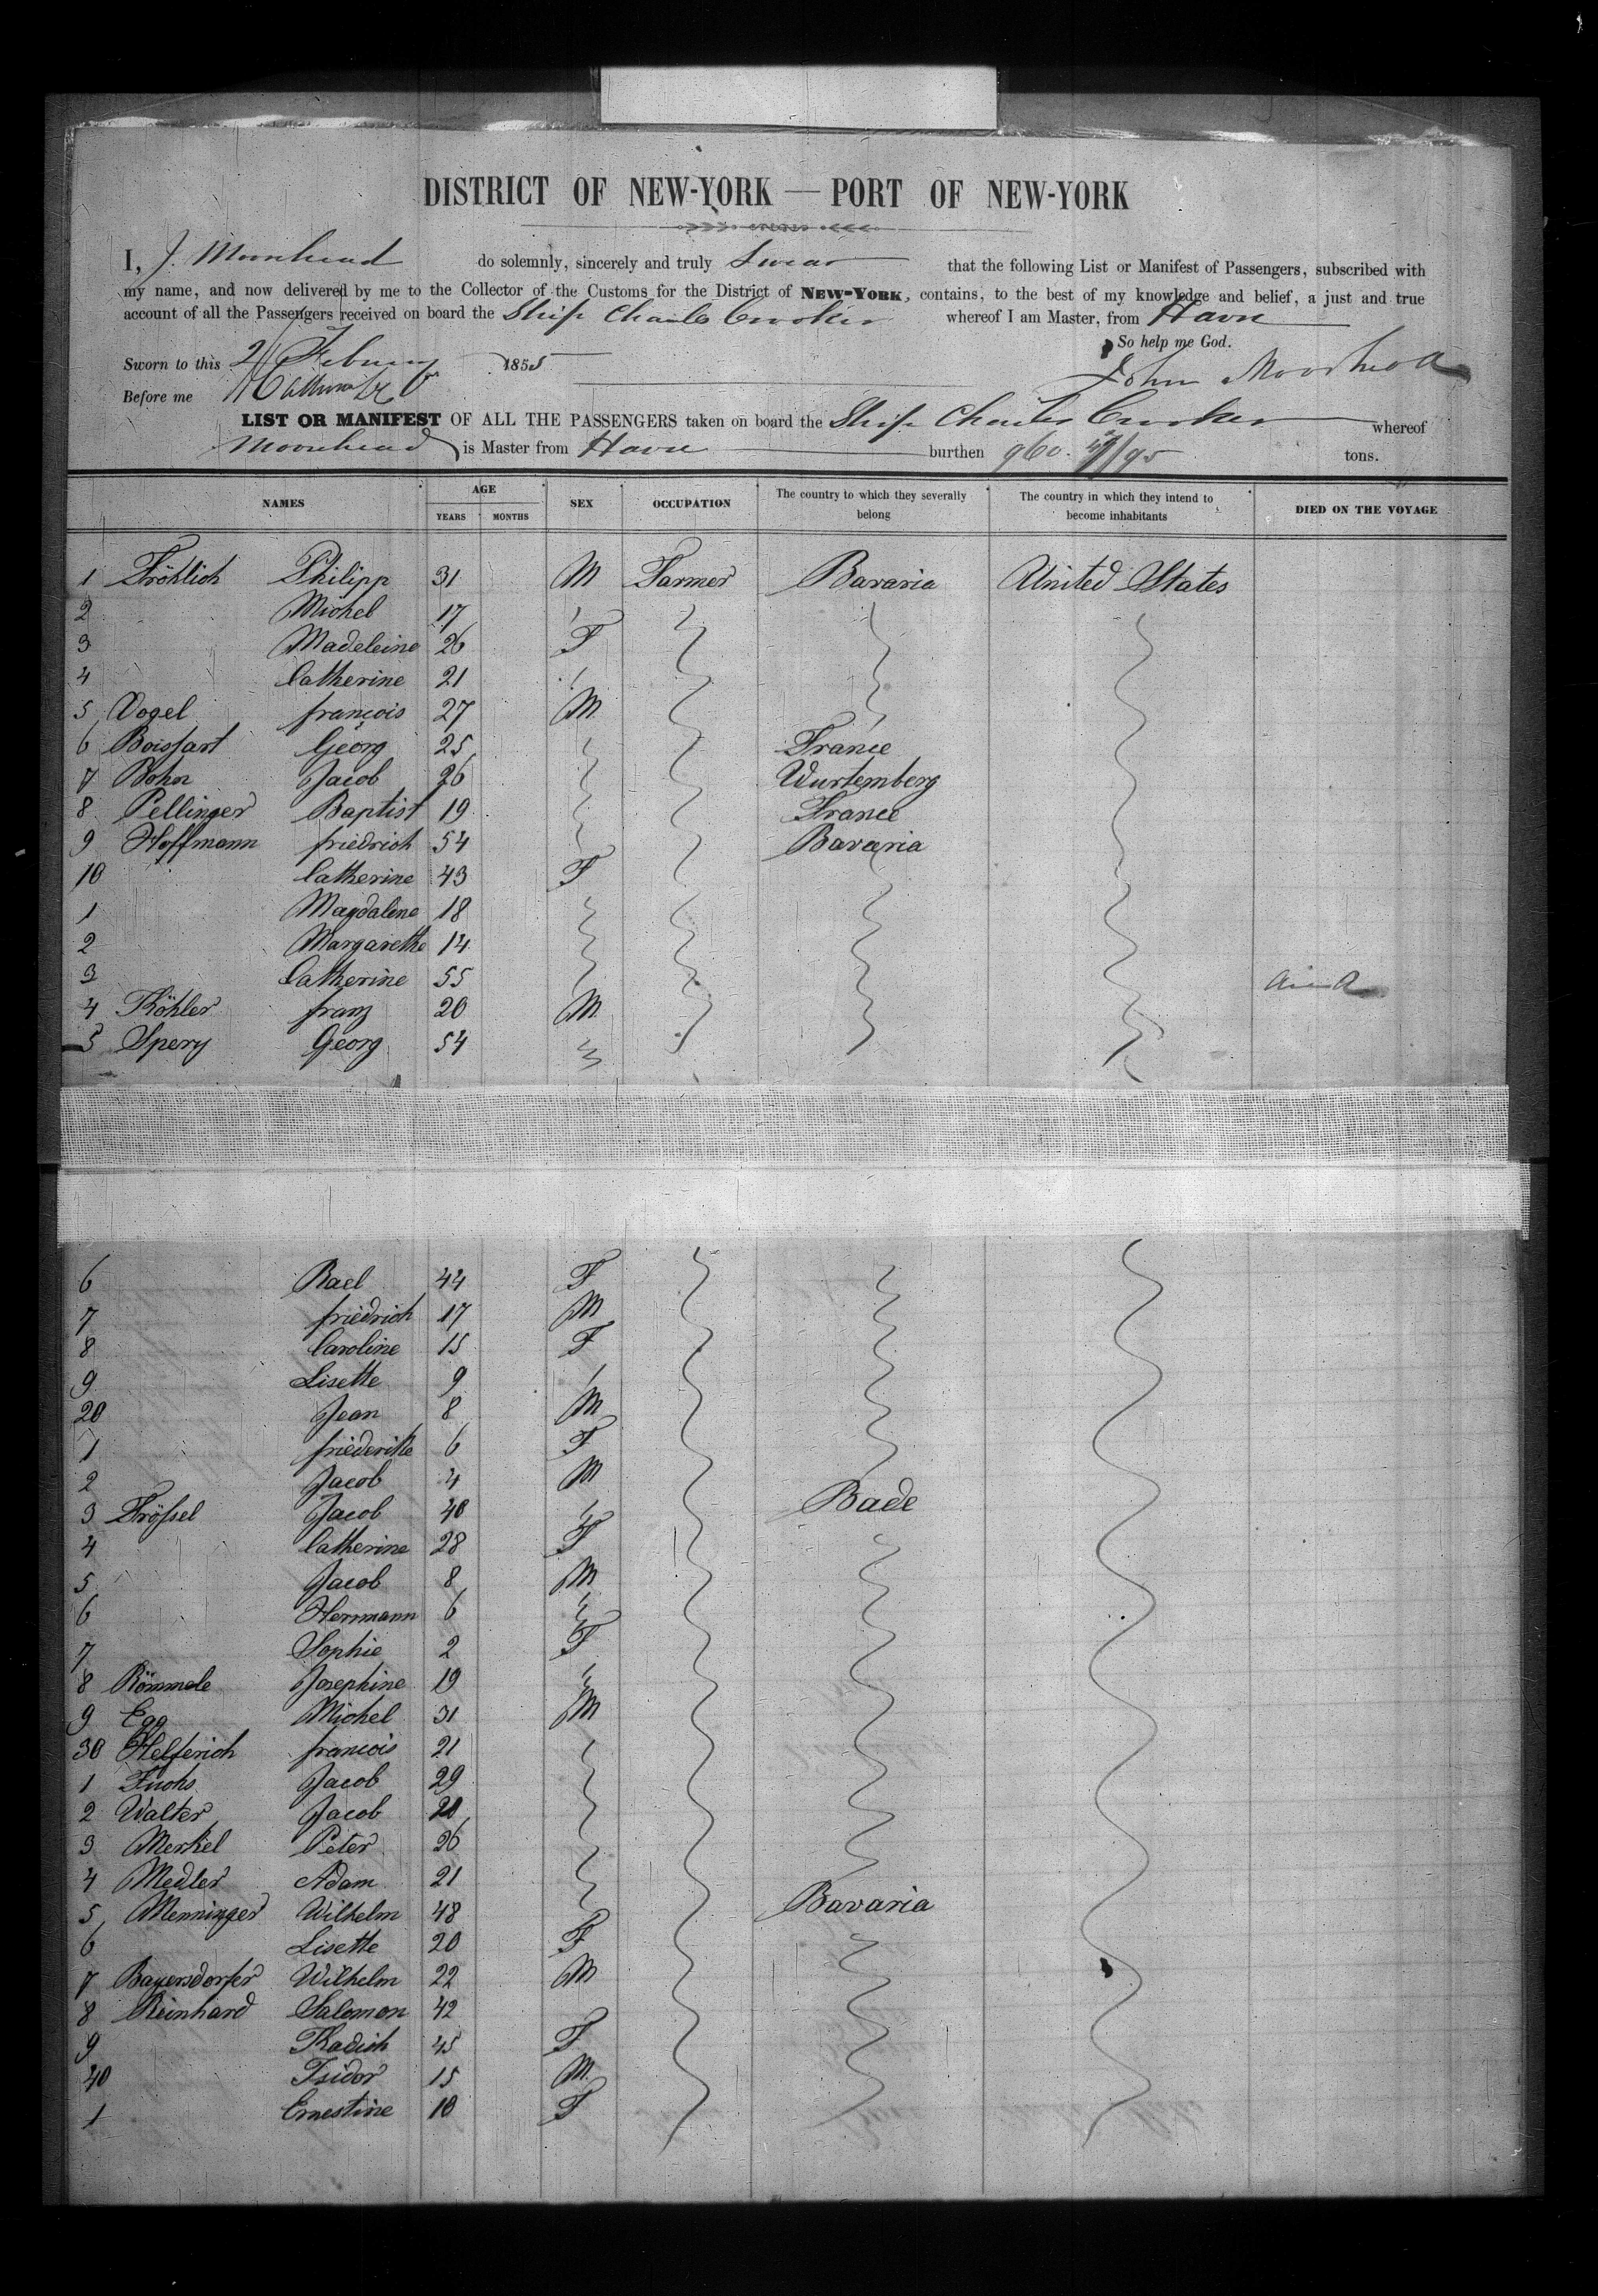 DISTRICT OF NEW-YORK — PORT OF NEW-YORK
I, J. Moorehead do solemnly, sincerely and truly Swear that the following List or Manifest of Passengers, subscribed with
my name, and now delivered by me to the Collector of the Customs for the District of NEW-YORK, contains, to the best of my knowledge and belief, a just and true
account of all the Passengers received on board the Ship Charles Crooker whereof I am Master, from Havre
So help me God.
Sworn to this 21 February 1855
John Moorhead
Before me
LIST OR MANIFEST OF ALL THE PASSENGERS taken on board the Ship Charles Crooker whereof
Moorehead is Master from Havre burthen 960. /95 tons.
NAMES AGE YEARS MONTHS SEX OCCUPATION The country to which they severally belong The country in which they intend to become inhabitants DIED ON THE VOYAGE
1 Fröhlich Philipp 31 M Farmer Bavaria United States
2 Michel 17
3 Madeleine 26 F
4 Catherine 21
5 Vogel françois 27 M
6 Boissart Georg 25 France
7 Bohn Jacob 26 Wurtemberg
8 Pellinger Baptist 19 France
9 Hoffmann friedrich 54 Bavaria
10 Catherine 43 F
1 Magdalene 18
2 Margarethe 14
3 Catherine 55
4 Köhler franz 20 M
5 Spery Georg 54
6 Bael 44 F
7 friedrich 17 M
8 Caroline 15 F
9 Lisette 9
20 Jean 8 M
1 friederike 6 F
2 Jacob 4 M
3 Frössel Jacob 40 Bade
4 Catherine 28 F
5 Jacob 8 M
6 Herrmann 6
7 Sophie 2 F
8 Römmele Josephine 19
9 Egg Michel 31 M
30 Helferich francois 21
1 Fuchs Jacob 29
2 Walter Jacob 20
3 Merkel Peter 26
4 Medler Adam 21
5 Menninger Wilhelm 48 Bavaria
6 Lisette 20 F
7 Bayersdorfer Wilhelm 22 M
8 Reinhard Salomon 42
9 Radich 45 F
40 Isidor 15 M
1 Ernestine 10 F